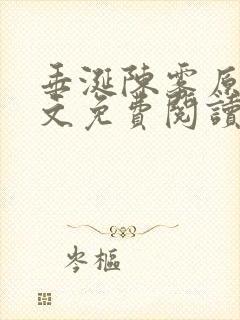 垂涎陳霧原
文免費閱讀
岑樞